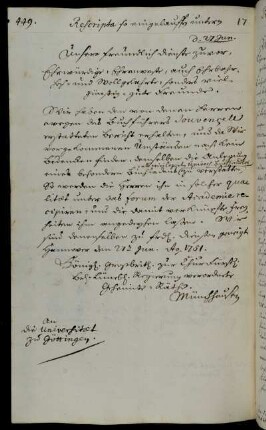 449. Rescripta so eingelauffen unterm 17
d. 27 Jun.
Unsere freundliche Dienste zuvor
Ehrwürdige, Ehrenveste, auch Ehrbahre,
Hoch- und Wohlgelahrte, insonders viel-
günstige, gute Freunde.
Wir haben den von denen Herren
wegen des Buchführers Jouvencel
erstatteten Bericht erhalten, und da Wir
vorgekommenen Umständen nach kein
Bedenken finden, demselben die Anlegung
einer besondern
So werden die Herren ihn in solcher qua-
litaet unter das forum der Academie re-
cipiren, und die damit verknüpfte frey-
heiten ihm angedeyhen laßen. Wir
sind denenselben zu freundl. Diensten geneigt
Hannover den 21t Jun. Ao 1751.
Königl. Großbrit. zur Churfürstl.
Regierung verordnete
Geheimte-Räthe
Münchhausen
An
die Universitet
zu Göttingen.